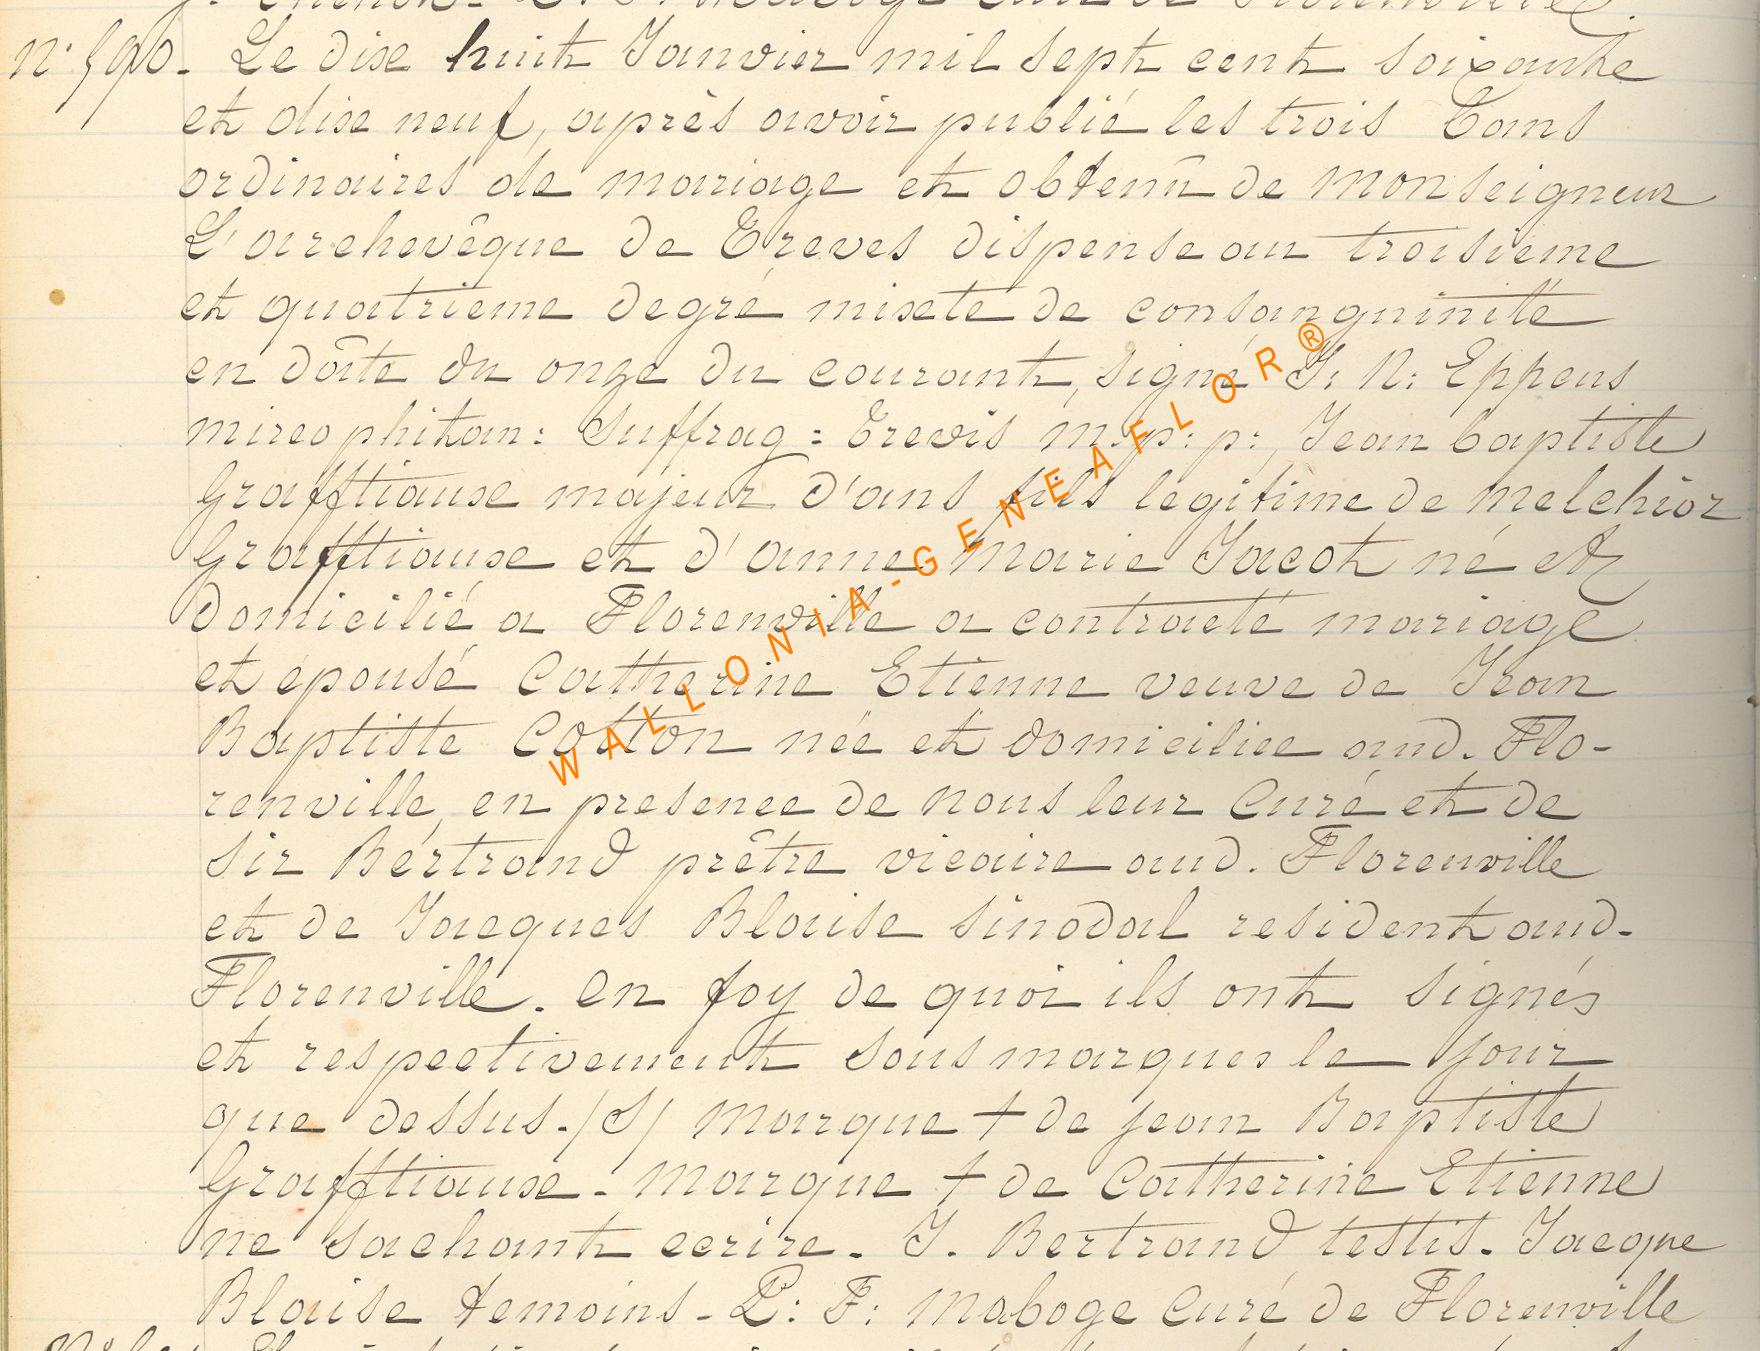 n° 590. Le dixe huit Janvier mil sept cent soixante
et dixe neuf, après avoir publié les trois bans
ordinaires de mariage et obtenû de Monseigneur
L'archevêque de Treves dispense au troisieme
et quatrieme degré mixete de consanguinité
en dâte du onze du courant, signé J: N: Eppens
mireophitan: Suffrag: Trevis m: p: p:, Jean baptiste
Grafftiauxe majeur d'ans fils legitime de Melchior
Grafftiauxe et d'anne Marie Jacot né et
domicilié a Florenville a contracté mariage
et épousé Catherine Etienne veuve de Jean
Baptiste Cotton née et domiciliee aud. Flo-
renville, en presence de nous leur Curé et de
Sir Bertrand prêtre vicaire aud. Florenville
et de Jacques Blaise sinodal resident aud.
Florenville. en foy de quoi ils ont signés
et respectivement sousmarques le jour
que dessus. /S/ Marque + de jean Baptiste
Grafftiauxe. Marque + de Catherine Etienne
ne sachant ecrire. J. Bertrand testis. Jacque
Blaise temoins - P: F: Maboge Curé de Florenville
WALLONIA-GENEAFLOR®